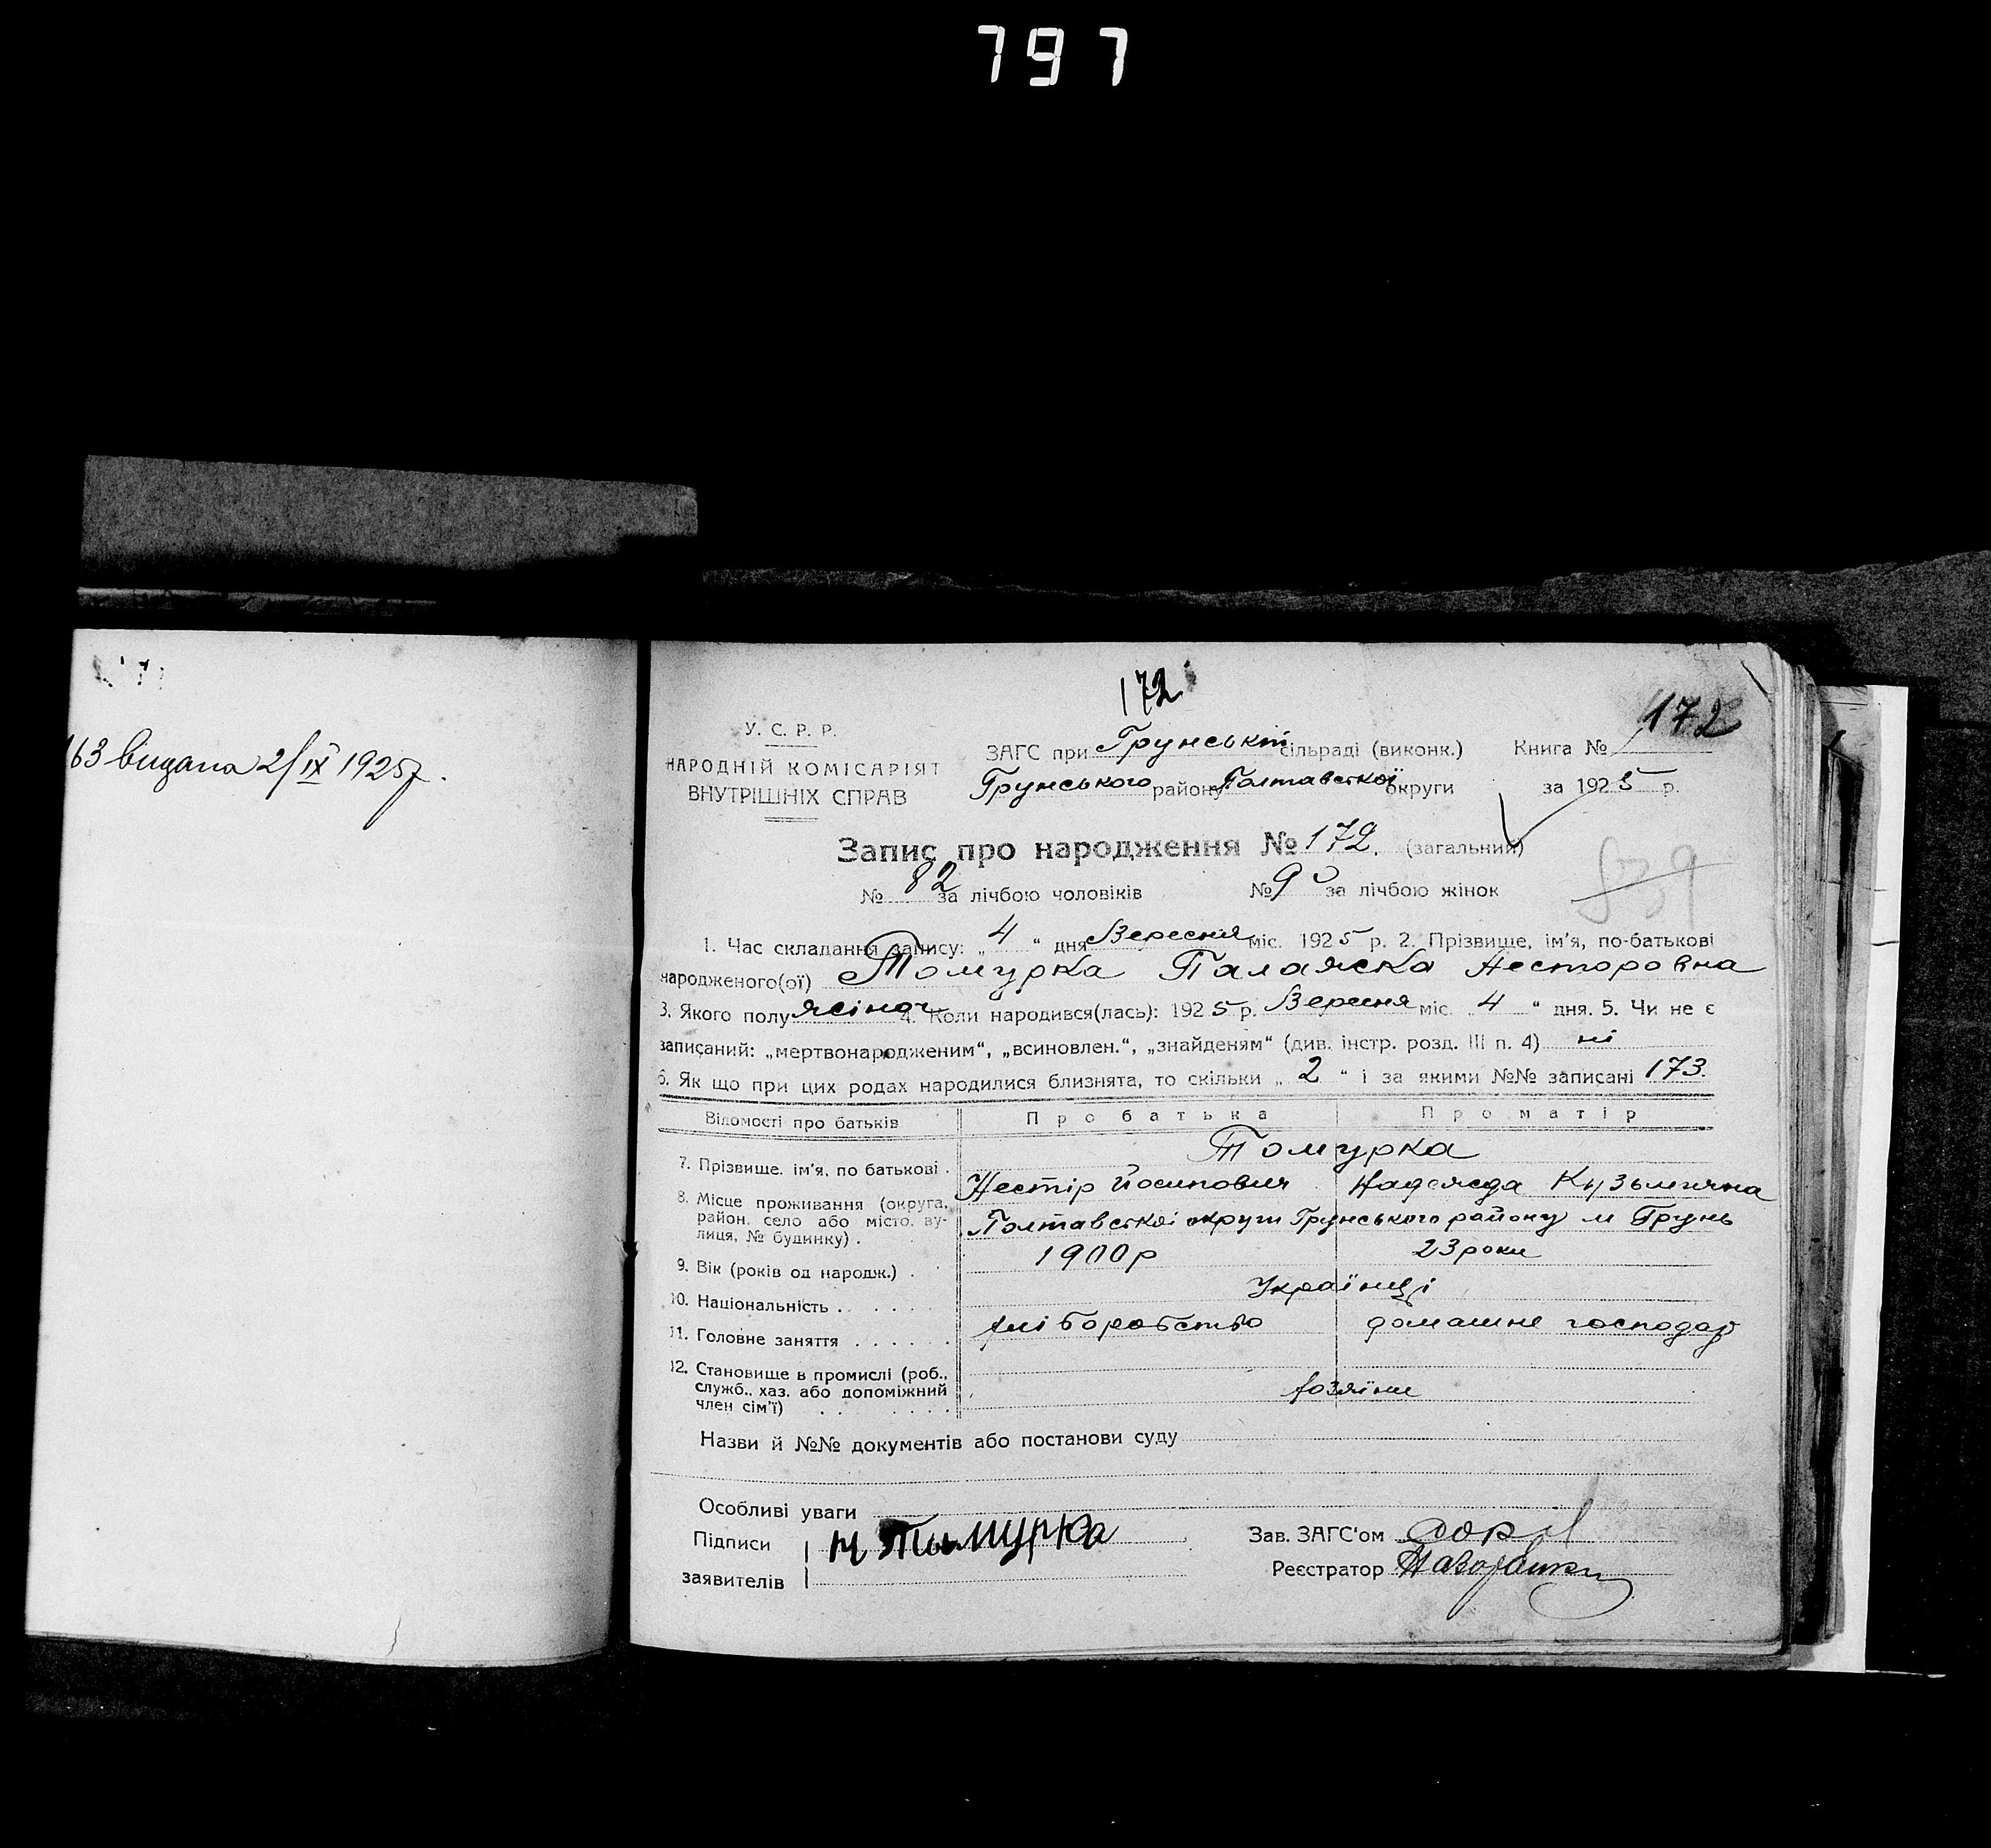 797
163 видана 2/IX 1925 р.
172
172
У. С. Р. Р.
НАРОДНІЙ КОМІСАРІЯТ
ВНУТРІШНІХ СПРАВ
ЗАГС при Грунській сільраді (виконк.) Книга №
Грунського району Полтавської округи за 1925 р.
Запис про народження № 172. (загальний)
№ 82 за лічбою чоловіків № 90 за лічбою жінок
1. Час складання запису: „ 4 “ дня Вересня міс. 1925 р. 2. Прізвище, ім’я, по-батькові
народженого(ої) Томурка Палажка Несторовна
3. Якого полу жіноч 4. Коли народився(лась): 1925 р. Вересня міс. „ 4 “ дня. 5. Чи не є
записаний: „мертвонародженим“, „всиновлен.“, „знайденям“ (див. інстр. розд. III п. 4) ні
6. Як що при цих родах народилися близнята, то скільки „ 2 “ і за якими №№ записані 173.
Відомості про батьків Про батька Про матір
Томурка
7. Прізвище, ім’я, по батькові . Нестір Йосипович Надежда Кузьмична
8. Місце проживання (округа, район, село або місто, ву-
лиця, № будинку) . Полтавської округи Грунського району м Грунь
9. Вік (років од народж.) . 1900 р 23 роки
10. Національність . Українці
11. Головне заняття . . . . . . хліборобство домашнє господар
12. Становище в промислі (роб.,
служб., хаз. або допоміжний
член сім’ї) . . . . . . . хозяїни
Назви й №№ документів або постанови суду
Особливі уваги
Підписи Н Томурка Зав. ЗАГС‘ом
заявителів Реєстратор